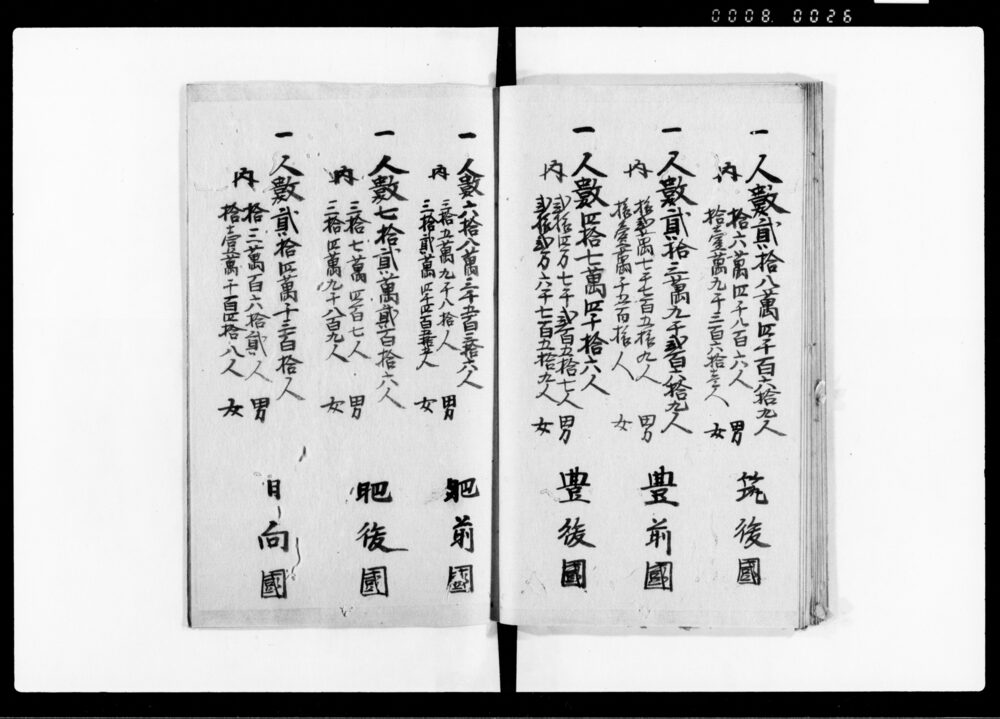 0008 0026
一 人數貳拾八萬四千百六拾九人
内
拾六萬四千八百六人 男
拾壹萬九千三百六拾三人 女
筑後國
一 人數貳拾三萬九千貳百六拾九人
内
拾貳萬七千七百五拾九人 男
拾壹萬千五百拾人 女
豊前國
一 人數四拾七萬四千拾六人
内
貳拾四万七千貳百五拾七人 男
貳拾貳万六千七百五拾九人 女
豊後國
一 人數六拾八萬三千五百三拾六人
内
三拾五萬九千八拾人 男
三拾貳萬四千四百五拾六人 女
肥前國
一 人數七拾貳萬貳百拾六人
内
三拾七萬四百七人 男
三拾四萬九千八百九人 女
肥後國
一 人數貳拾四萬千三百拾人
内
拾三萬百六拾貳人 男
拾壹萬千百四拾八人 女
日向國